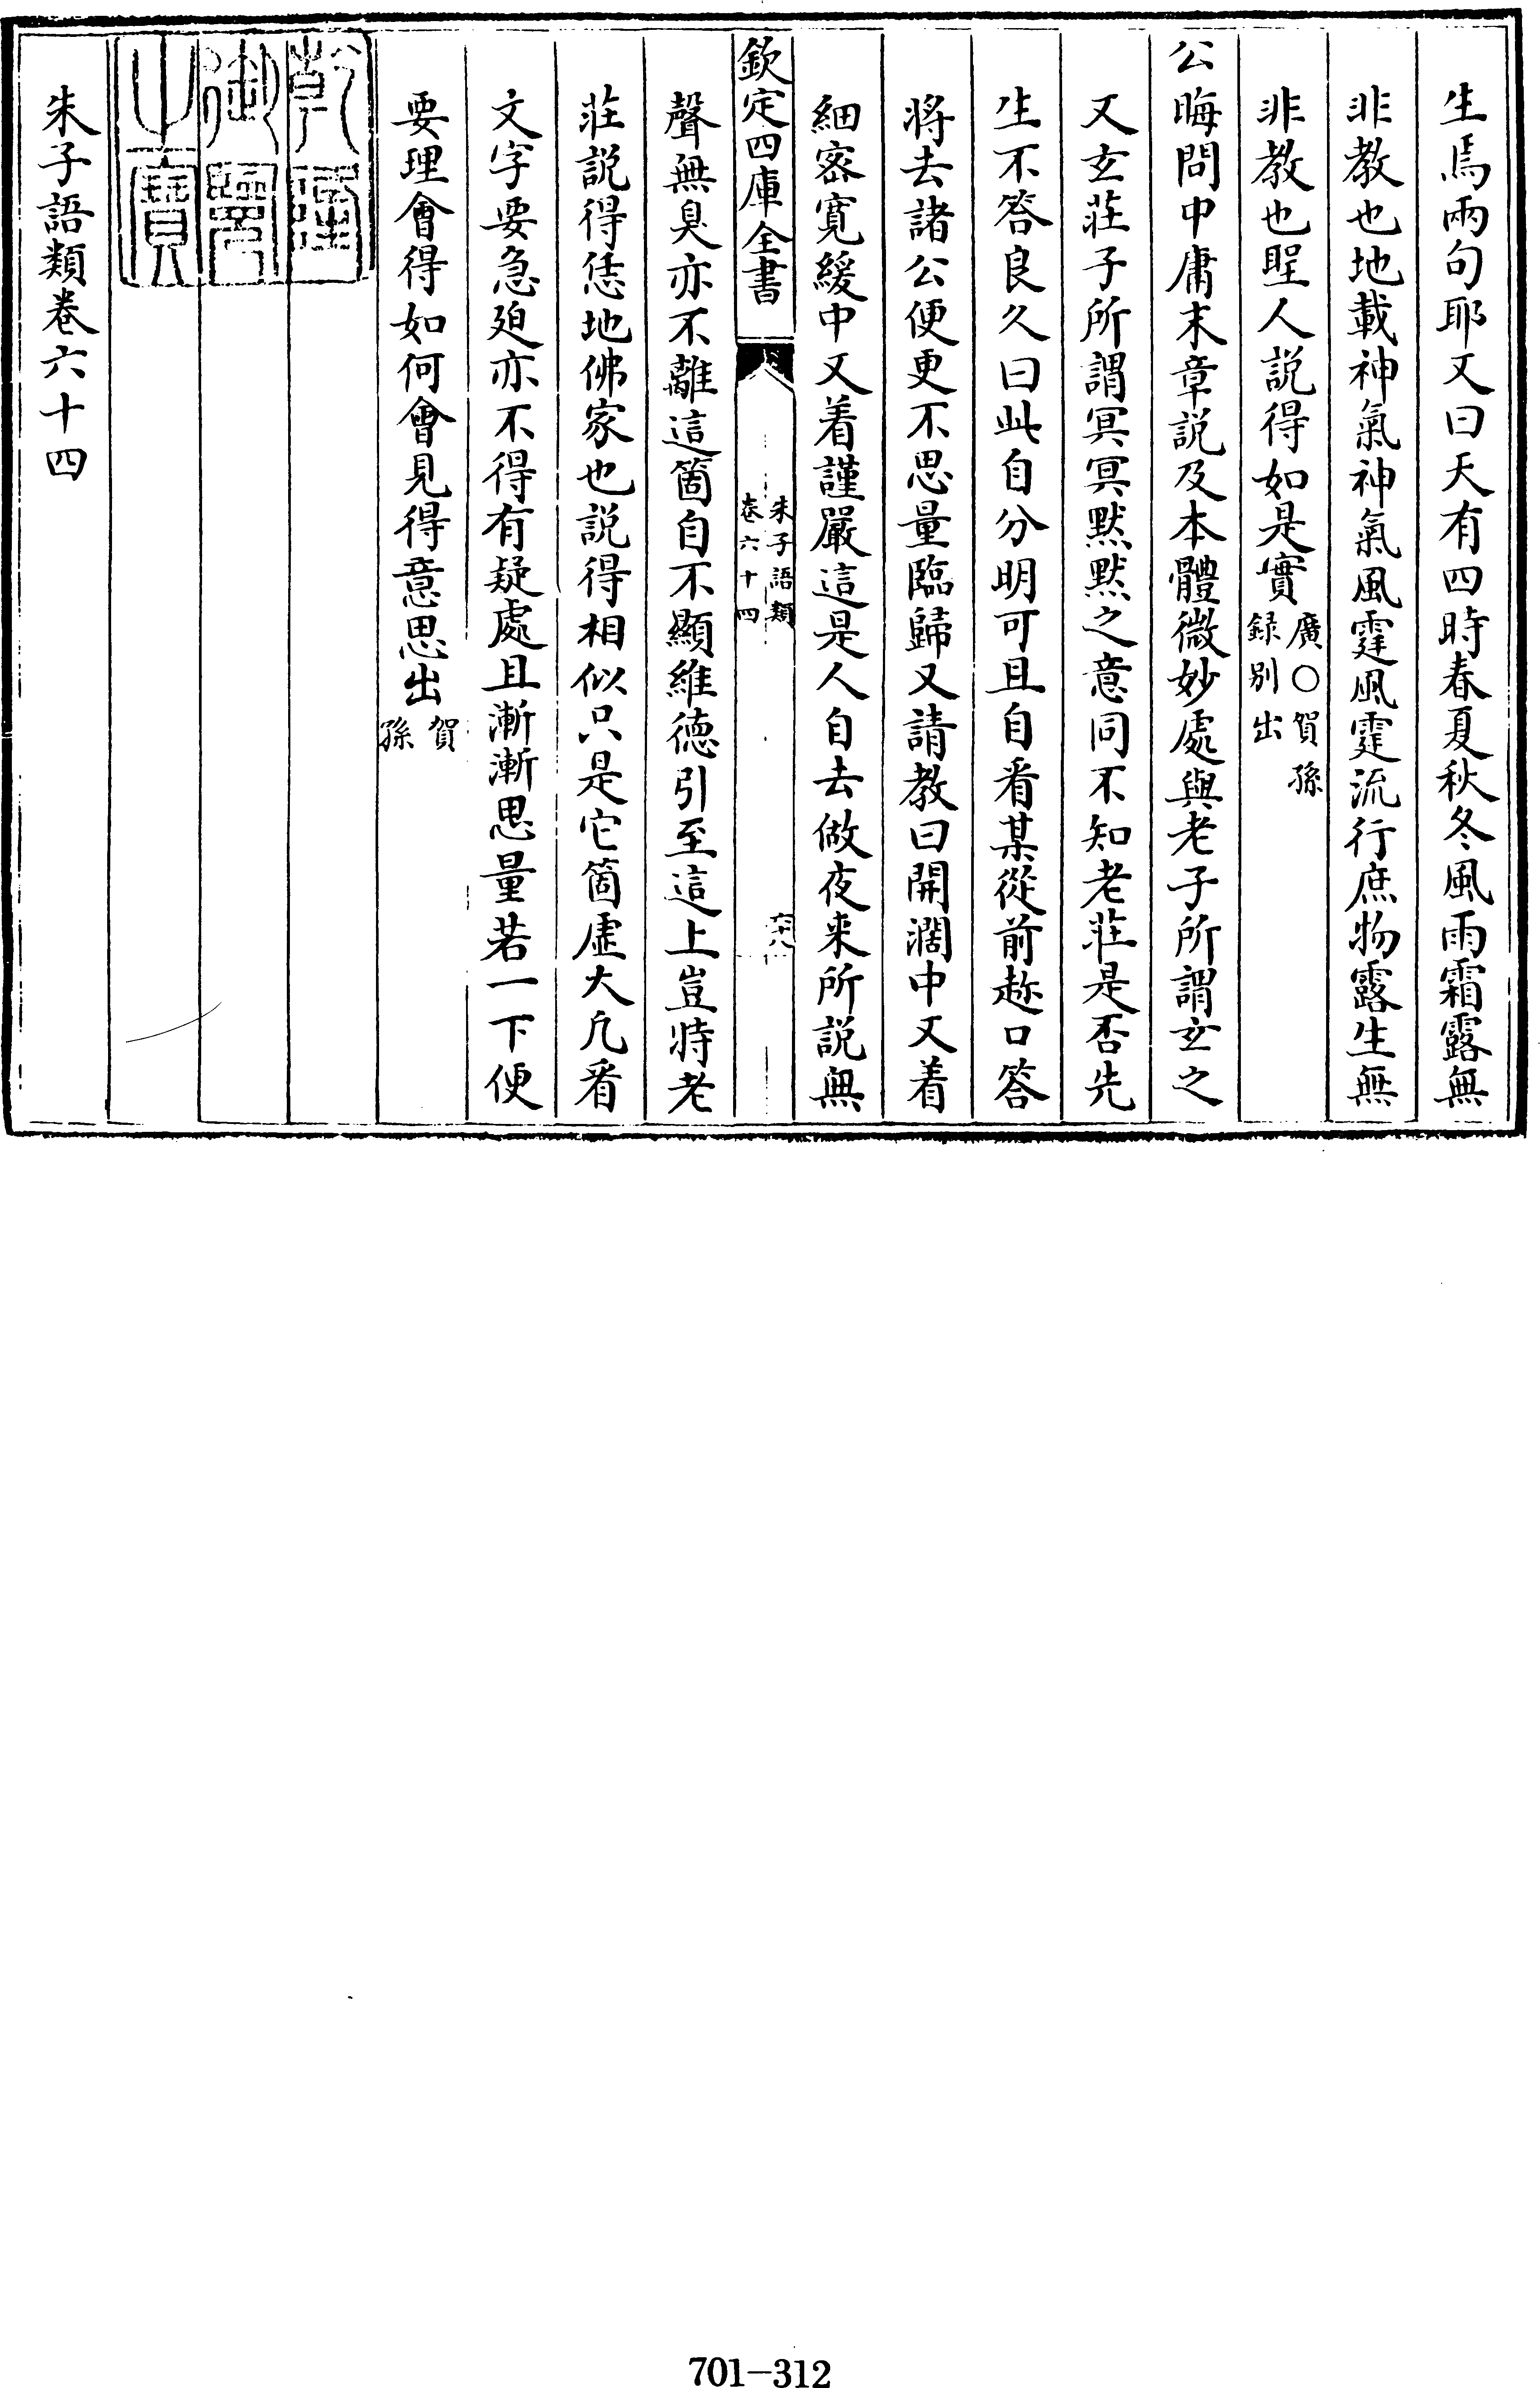 生焉兩句耶又曰天有四時春夏秋冬風雨霜露無
非教也地載神氣神氣風霆風霆流行庶物露生無
非教也聖人説得如是實廣○賀孫録别出
公晦問中庸末章説及本體微妙處與老子所謂玄之
又玄莊子所謂冥冥默默之意同不知老莊是否先
生不答良久曰此自分明可且自看某從前趂口答
將去諸公便更不思量臨歸又請教曰開濶中又着
細宻寛緩中又着謹嚴這是人自去做夜来所説無
欽定四庫全書
朱子語類
卷六十四
六八
聲無臭亦不離這箇自不顯維德引至這上豈特老
莊説得恁地佛家也説得相似只是它箇虚大凡看
文字要急廹亦不得有疑處且漸漸思量若一下便
要理會得如何會見得意思出賀孫
乾隆
御覽
之寶
朱子語類卷六十四
701-312